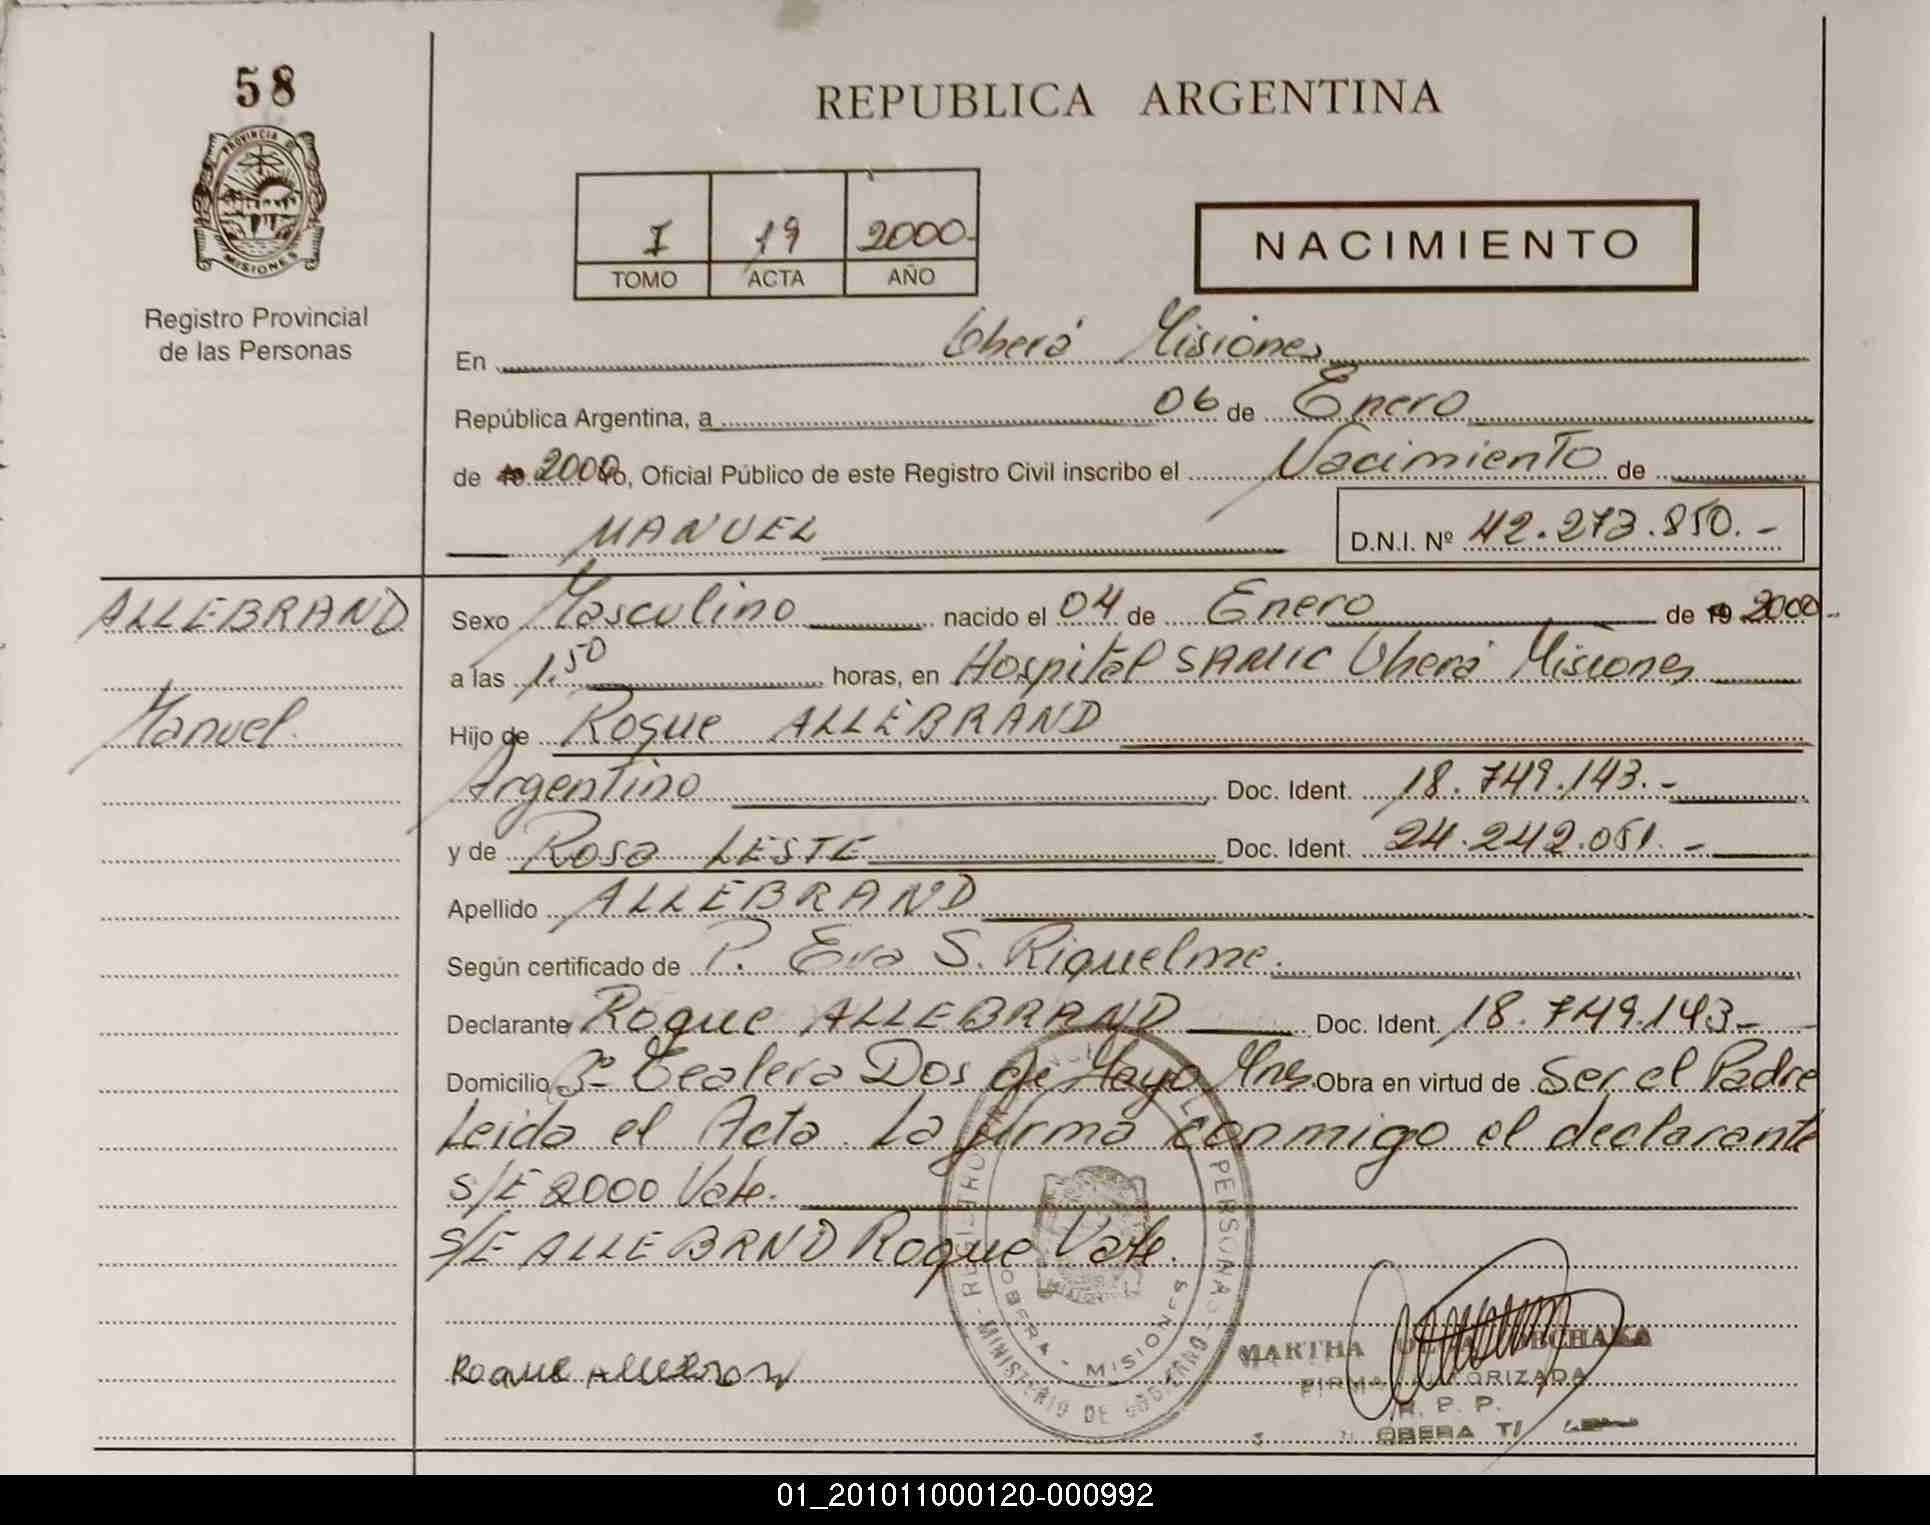 58
PROVINCIA D
MISIONES
Registro Provincial
de las Personas
REPUBLICA ARGENTINA
I 19 2000-
TOMO ACTA AÑO
NACIMIENTO
En Oberá Misiones
República Argentina, a 06 de Enero
de 19 2000 yo, Oficial Público de este Registro Civil inscribo el Nacimiento de
MANUEL D.N.I. Nº 42.273.850.-
ALLEBRAND
Manuel.
Sexo Masculino nacido el 04 de Enero de 19 2000-
a las 1.50 horas, en Hospital SAMIC Oberá Misiones
Hijo de Roque ALLEBRAND
Argentino Doc. Ident. 18.749.143.-
y de Rosa LESTE Doc. Ident. 24.242.051.-
Apellido ALLEBRAND
Según certificado de P. Eva S. Riquelme.
Declarante Roque ALLEBRAND Doc. Ident. 18.749.143-
Domicilio Bº Tealera Dos de Mayo Mnes. Obra en virtud de Ser el Padre
Leida el Acta. La firma conmigo el declarante
S/E 2000 Vale.
S/E ALLEBRND Roque Vale.
PERSONAS
OBERA - MISIONES
MINISTERIO DE GOBIERNO
ROQUE
MARTHA
FIRMA AUTORIZADA
R. P. P.
OBERA
01_201011000120-000992